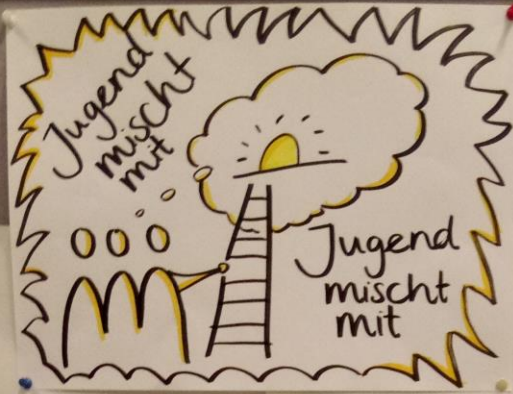 Jugend
mischt
mit
Jugend
mischt
mit